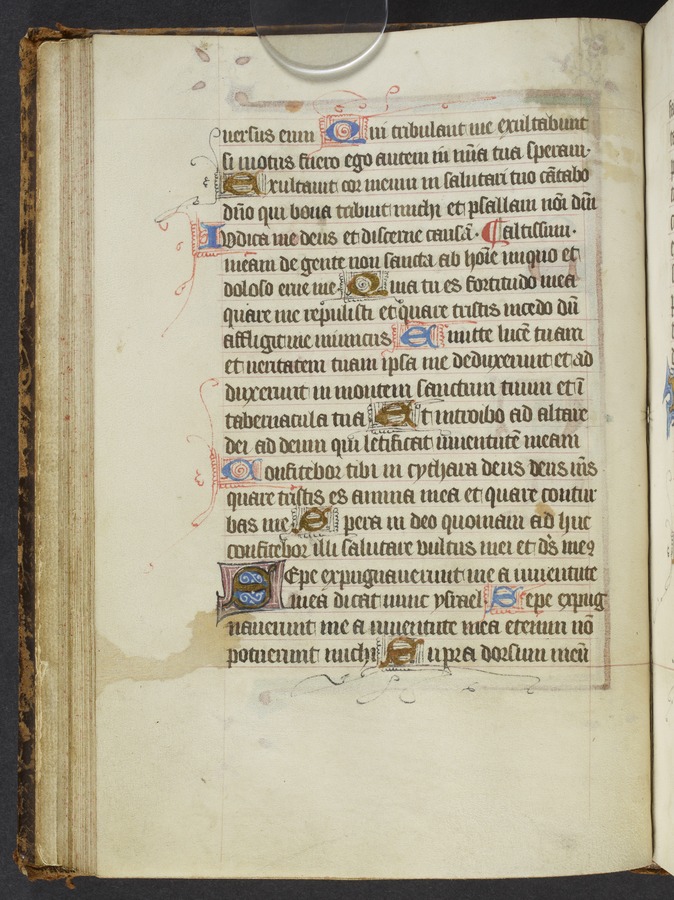 uersus eum Qui tribulant me exultabunt
si motus fuero ego autem in mīa tua speraui·
Exultauit cor meum in salutari tuo cātabo
dn̄o qui bona tribuit michi et psallam noī dn̄i
Iudica me deus et discerne causā· altissimi·
meam de gente non sancta ab hoīe iniquo et
doloso erue me Quia tu es fortitudo mea
quare me repulisti et quare tristis incedo dū
affligit me inimicus Emitte lucē tuam
et ueritatem tuam ipsa me deduxerunt et ad
duxerunt in montem sanctum tuum et ī
tabernacula tua Et introibo ad altare
dei ad deum qui letificat iuuentutē meam
Confitebor tibi in cythara deus deus m̄s
quare tristis es anima mea et quare contur
bas me Spera in deo quoniam ad huc
confitebor illi salutare uultus mei et d̄s meꝰ
SEpe expugnauerunt me a iuuentute
meā dicat nunc ysrael Sepe expug
nauerunt me a iuuentute mea etenim nō
potuerunt michi Supra dorsum meū